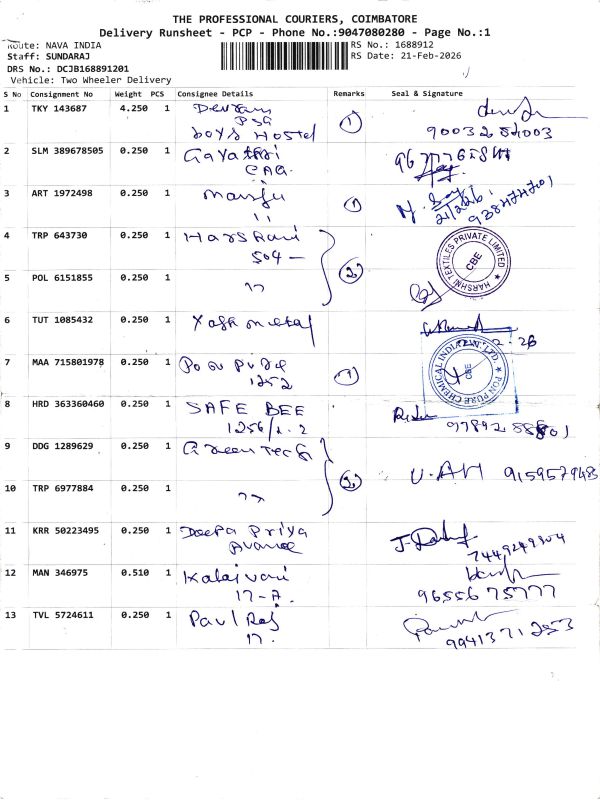 THE PROFESSIONAL COURIERS, COIMBATORE
Delivery Runsheet - PCP - Phone No.:9047080280 - Page No.:1
Route: NAVA INDIA
RS No.: 1688912
Staff: SUNDARAJ
RS Date: 21-Feb-2026
DRS No.: DCJB168891201
Vehicle: Two Wheeler Delivery
S No Consignment No Weight PCS Consignee Details Remarks Seal & Signature
1 TKY 143687 4.250 1 Devram
PSG
boys Hostel
1
90032 52003
2 SLM 389678505 0.250 1 Gayathri
CAG
3 ART 1972498 0.250 1 Manju
11
1
4 TRP 643730 0.250 1 Harshani
504 -
2
HARSHNI TEXTILES PRIVATE LIMITED
CBE
5 POL 6151855 0.250 1 "
6 TUT 1085432 0.250 1 Yash metal
7 MAA 715801978 0.250 1 Pon Pure
1252
1
PON PURE CHEMICAL INDIA PVT. LTD.
CBE
8 HRD 363360460 0.250 1 SAFE BEE
1256/1.2
9 DDG 1289629 0.250 1 Green Tech
2
9159579485
10 TRP 6977884 0.250 1 "
11 KRR 50223495 0.250 1 Deepa Priya
7449249904
12 MAN 346975 0.510 1 Kalaivani
17-A.
9655675777
13 TVL 5724611 0.250 1 Paul Raj
17.
9941371253